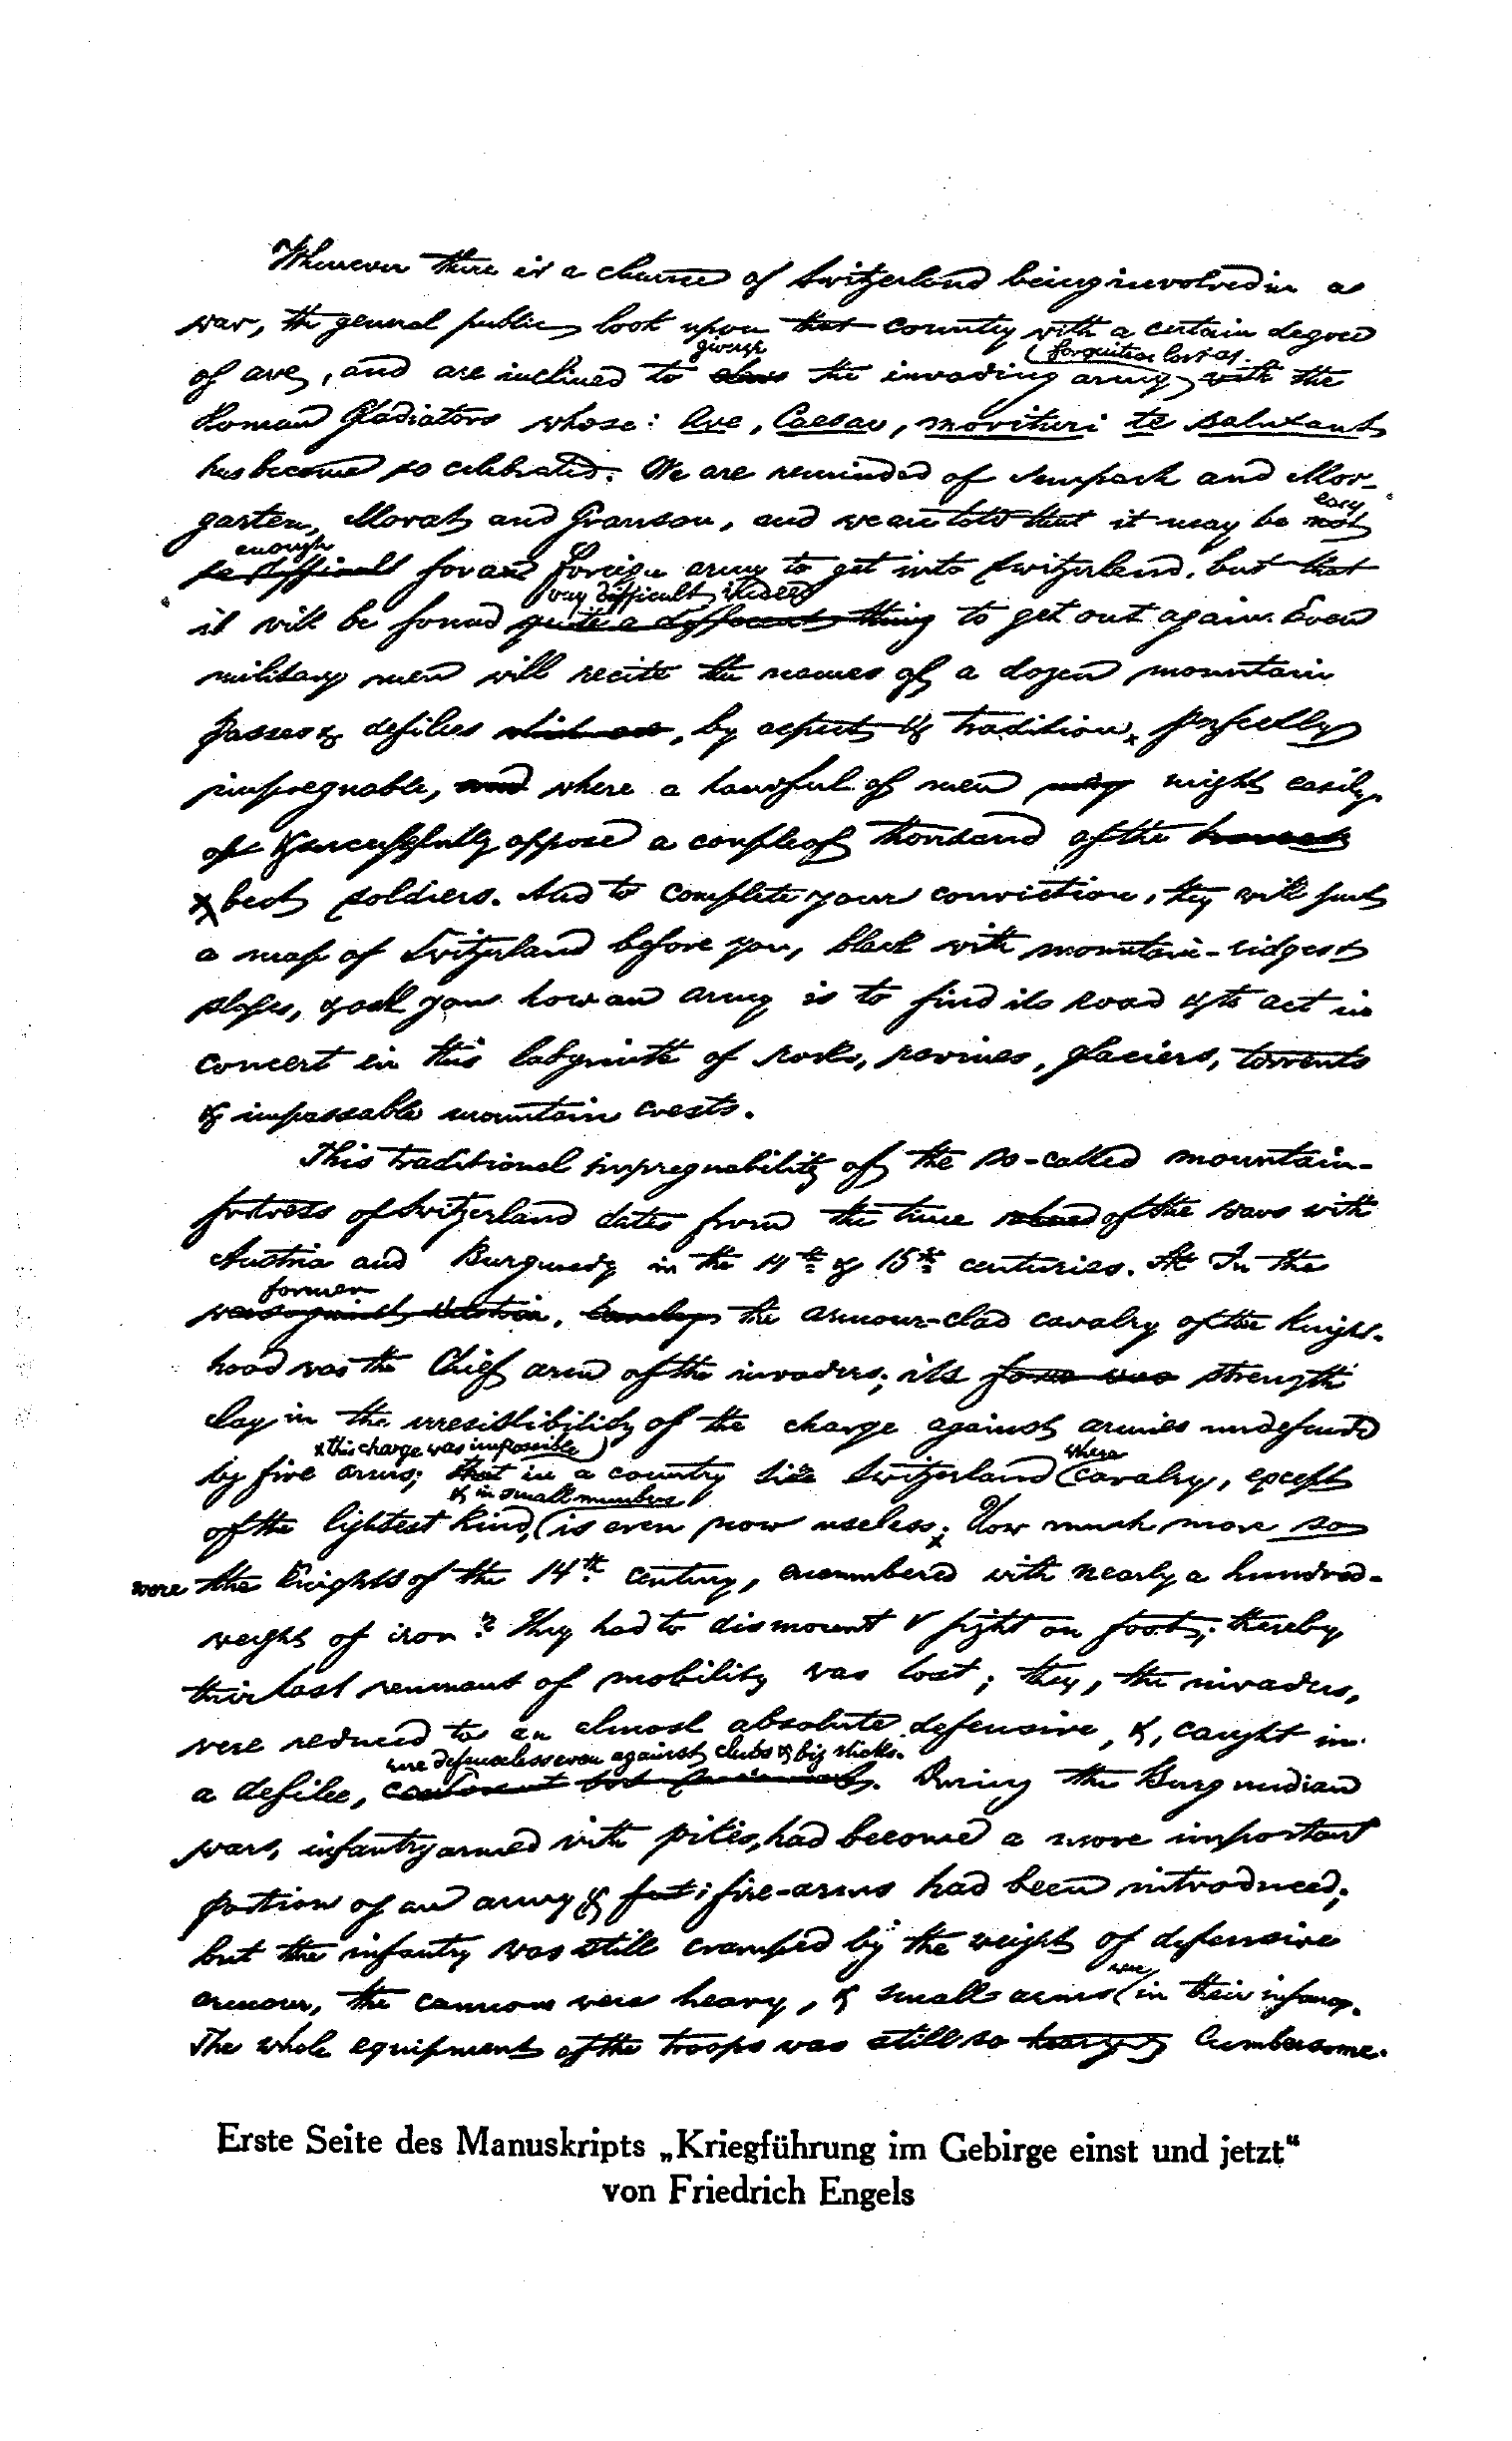 Whenever there is a chance of Switzerland being involved in a
war, the general public look upon that country with a certain degree
of awe, and are inclined to give up the invading army for quite as lost as the
Roman Gladiators whose: Ave, Caesar, morituri te salutant
has become so celebrated. We are reminded of Sempach and Mor-
garten, Morat and Granson, and we are told that it may be easy
enough for an foreign army to get into Switzerland, but that
it will be found very difficult indeed to get out again. Even
military men will recite the names of a dozen mountain
passes & defiles, by aspect & tradition, perfectly
impregnable, and where a handful of men may might easily
& successfully oppose a couple of thousand of the
best soldiers. And to complete your conviction, they will put
a map of Switzerland before you, black with mountain-ridges &
slopes, & ask you how an army is to find its road & to act in
concert in this labyrinth of rocks, ravines, glaciers, torrents
& impassable mountain crests.
This traditional impregnability of the so-called mountain-
fortress of Switzerland dates from the time of the wars with
Austria and Burgundy in the 14th & 15th centuries. In the
former, the armour-clad cavalry of the Knight-
hood was the chief arm of the invaders; its force was strength
lay in the irresistibility of the charge against armies undefended
by fire arms; & this charge was impossible in a country like Switzerland where cavalry, except
of the lightest kind, & in small numbers is even now useless; How much more so
were the Knights of the 14th century, encumbered with nearly a hundred-
weight of iron? They had to dismount & fight on foot; thereby
their last remnant of mobility was lost; they, the invaders,
were reduced to an almost absolute defensive, &, caught in
a defile, were defenceless even against clubs & big sticks. During the Burgundian
wars, infantry armed with pikes, had become a more important
portion of an army & fire-arms had been introduced;
but the infantry was still cramped by the weight of defensive
armour, the cannon were heavy, & small arms were in their infancy.
The whole equipment of the troops was still so heavy cumbersome
Erste Seite des Manuskripts „Kriegführung im Gebirge einst und jetzt“
von Friedrich Engels